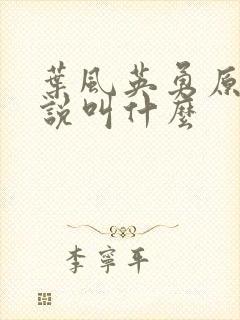 葉風英勇原
說叫什麼
李寧平